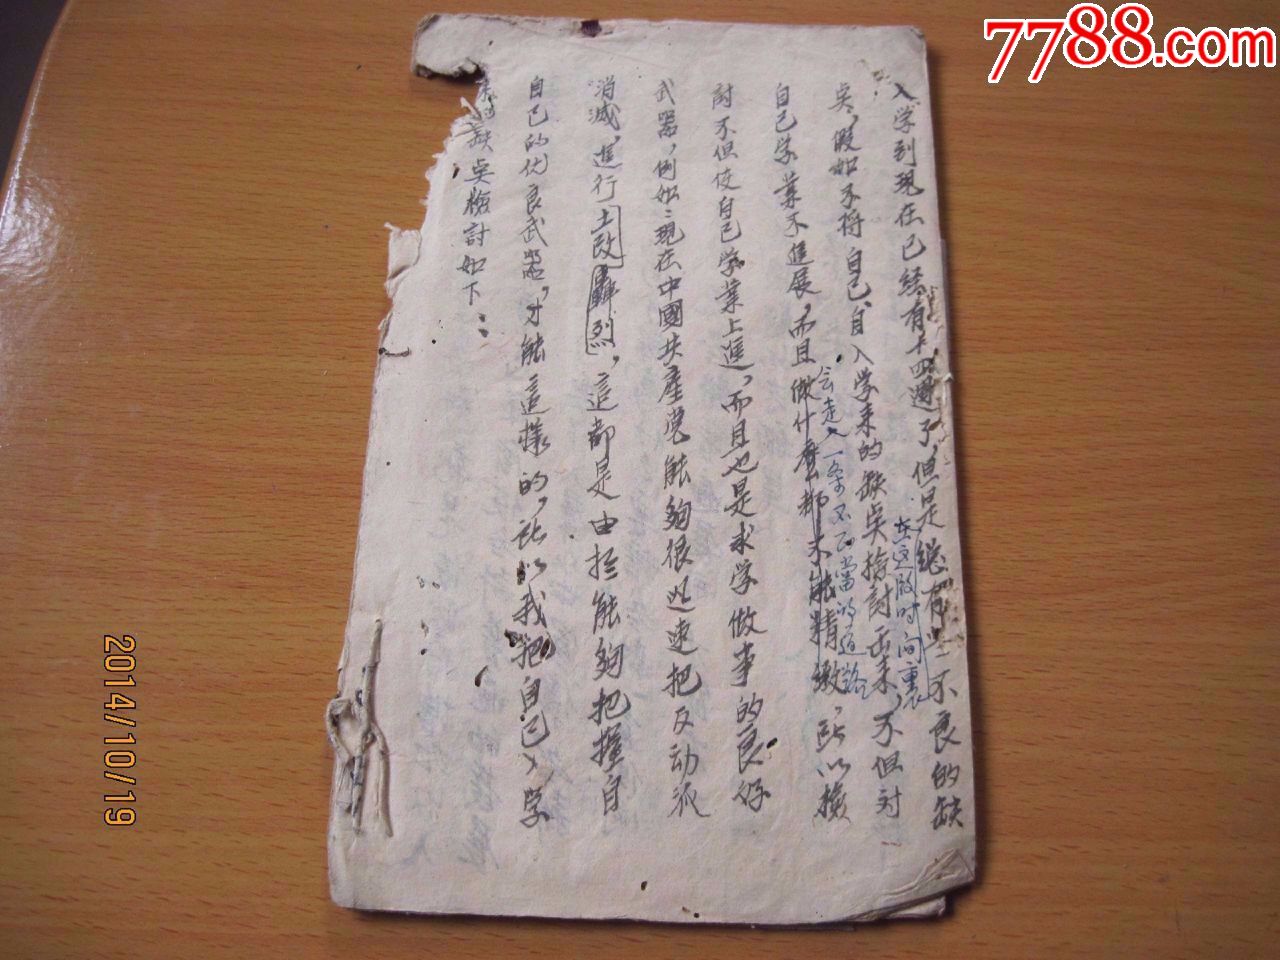 7788.com
入学到现在已经有十四週了，但是总有些不良的缺
在这段时间裏
奌，假如不将自己自入学来的缺奌检討出来，不但対
会走入一条不正當的道路
自己学業不進展，而且做什麼都不能精緻，所以檢
討不但使自己学業上進，而且也是求学做事的良好
武器，例如：現在中國共產党能夠很迅速把反动派
消滅，進行土改轟烈，這都是由於能夠把握自
自己的优良武器，才能這樣的，所以我把自己入学
来的缺奌檢討如下：
2014/10/19